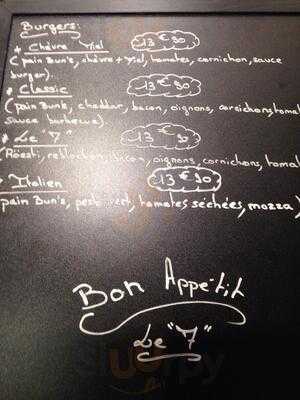 Burgers:
* Chèvre Miel 13€90
(pain Bun's, chèvre + Miel, tomates, cornichon, sauce
burger).
* Classic 13€90
(pain Bun's, cheddar, bacon, oignons, cornichons, tomat
sauce barbecue).
* Le "7" 13€90
(Röesti, reblochon, bacon, oignons, cornichons, tomat
* Italien 13€90
pain Bun's, pesto vert, tomates séchées, mozza)
Bon Appétit
Le "7"